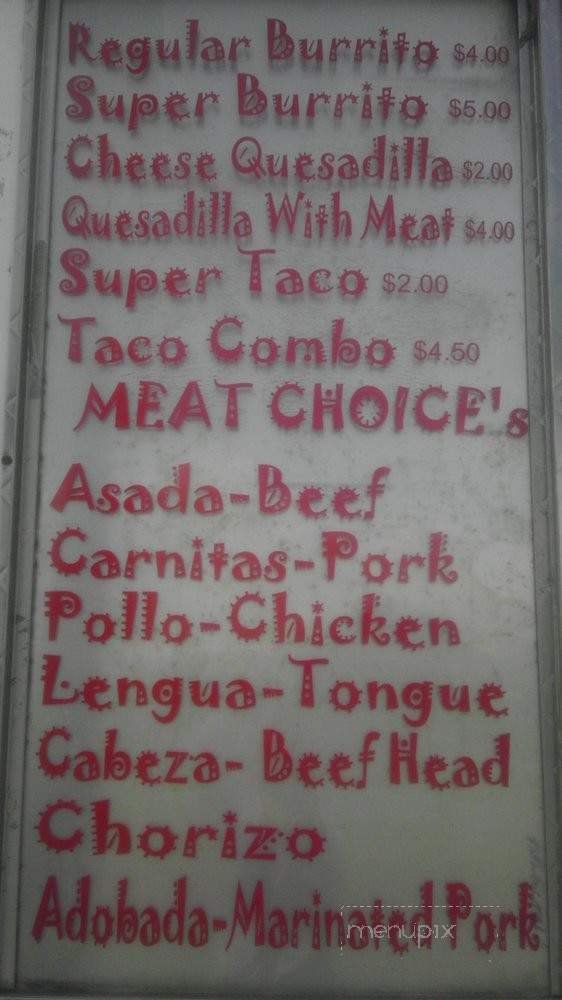 Regular Burrito $4.00
Super Burrito $5.00
Cheese Quesadilla $2.00
Quesadilla With Meat $4.00
Super Taco $2.00
Taco Combo $4.50
MEAT CHOICE's
Asada-Beef
Carnitas-Pork
Pollo-Chicken
Lengua-Tongue
Cabeza- Beef Head
Chorizo
Adobada-Marinated Pork
menupix